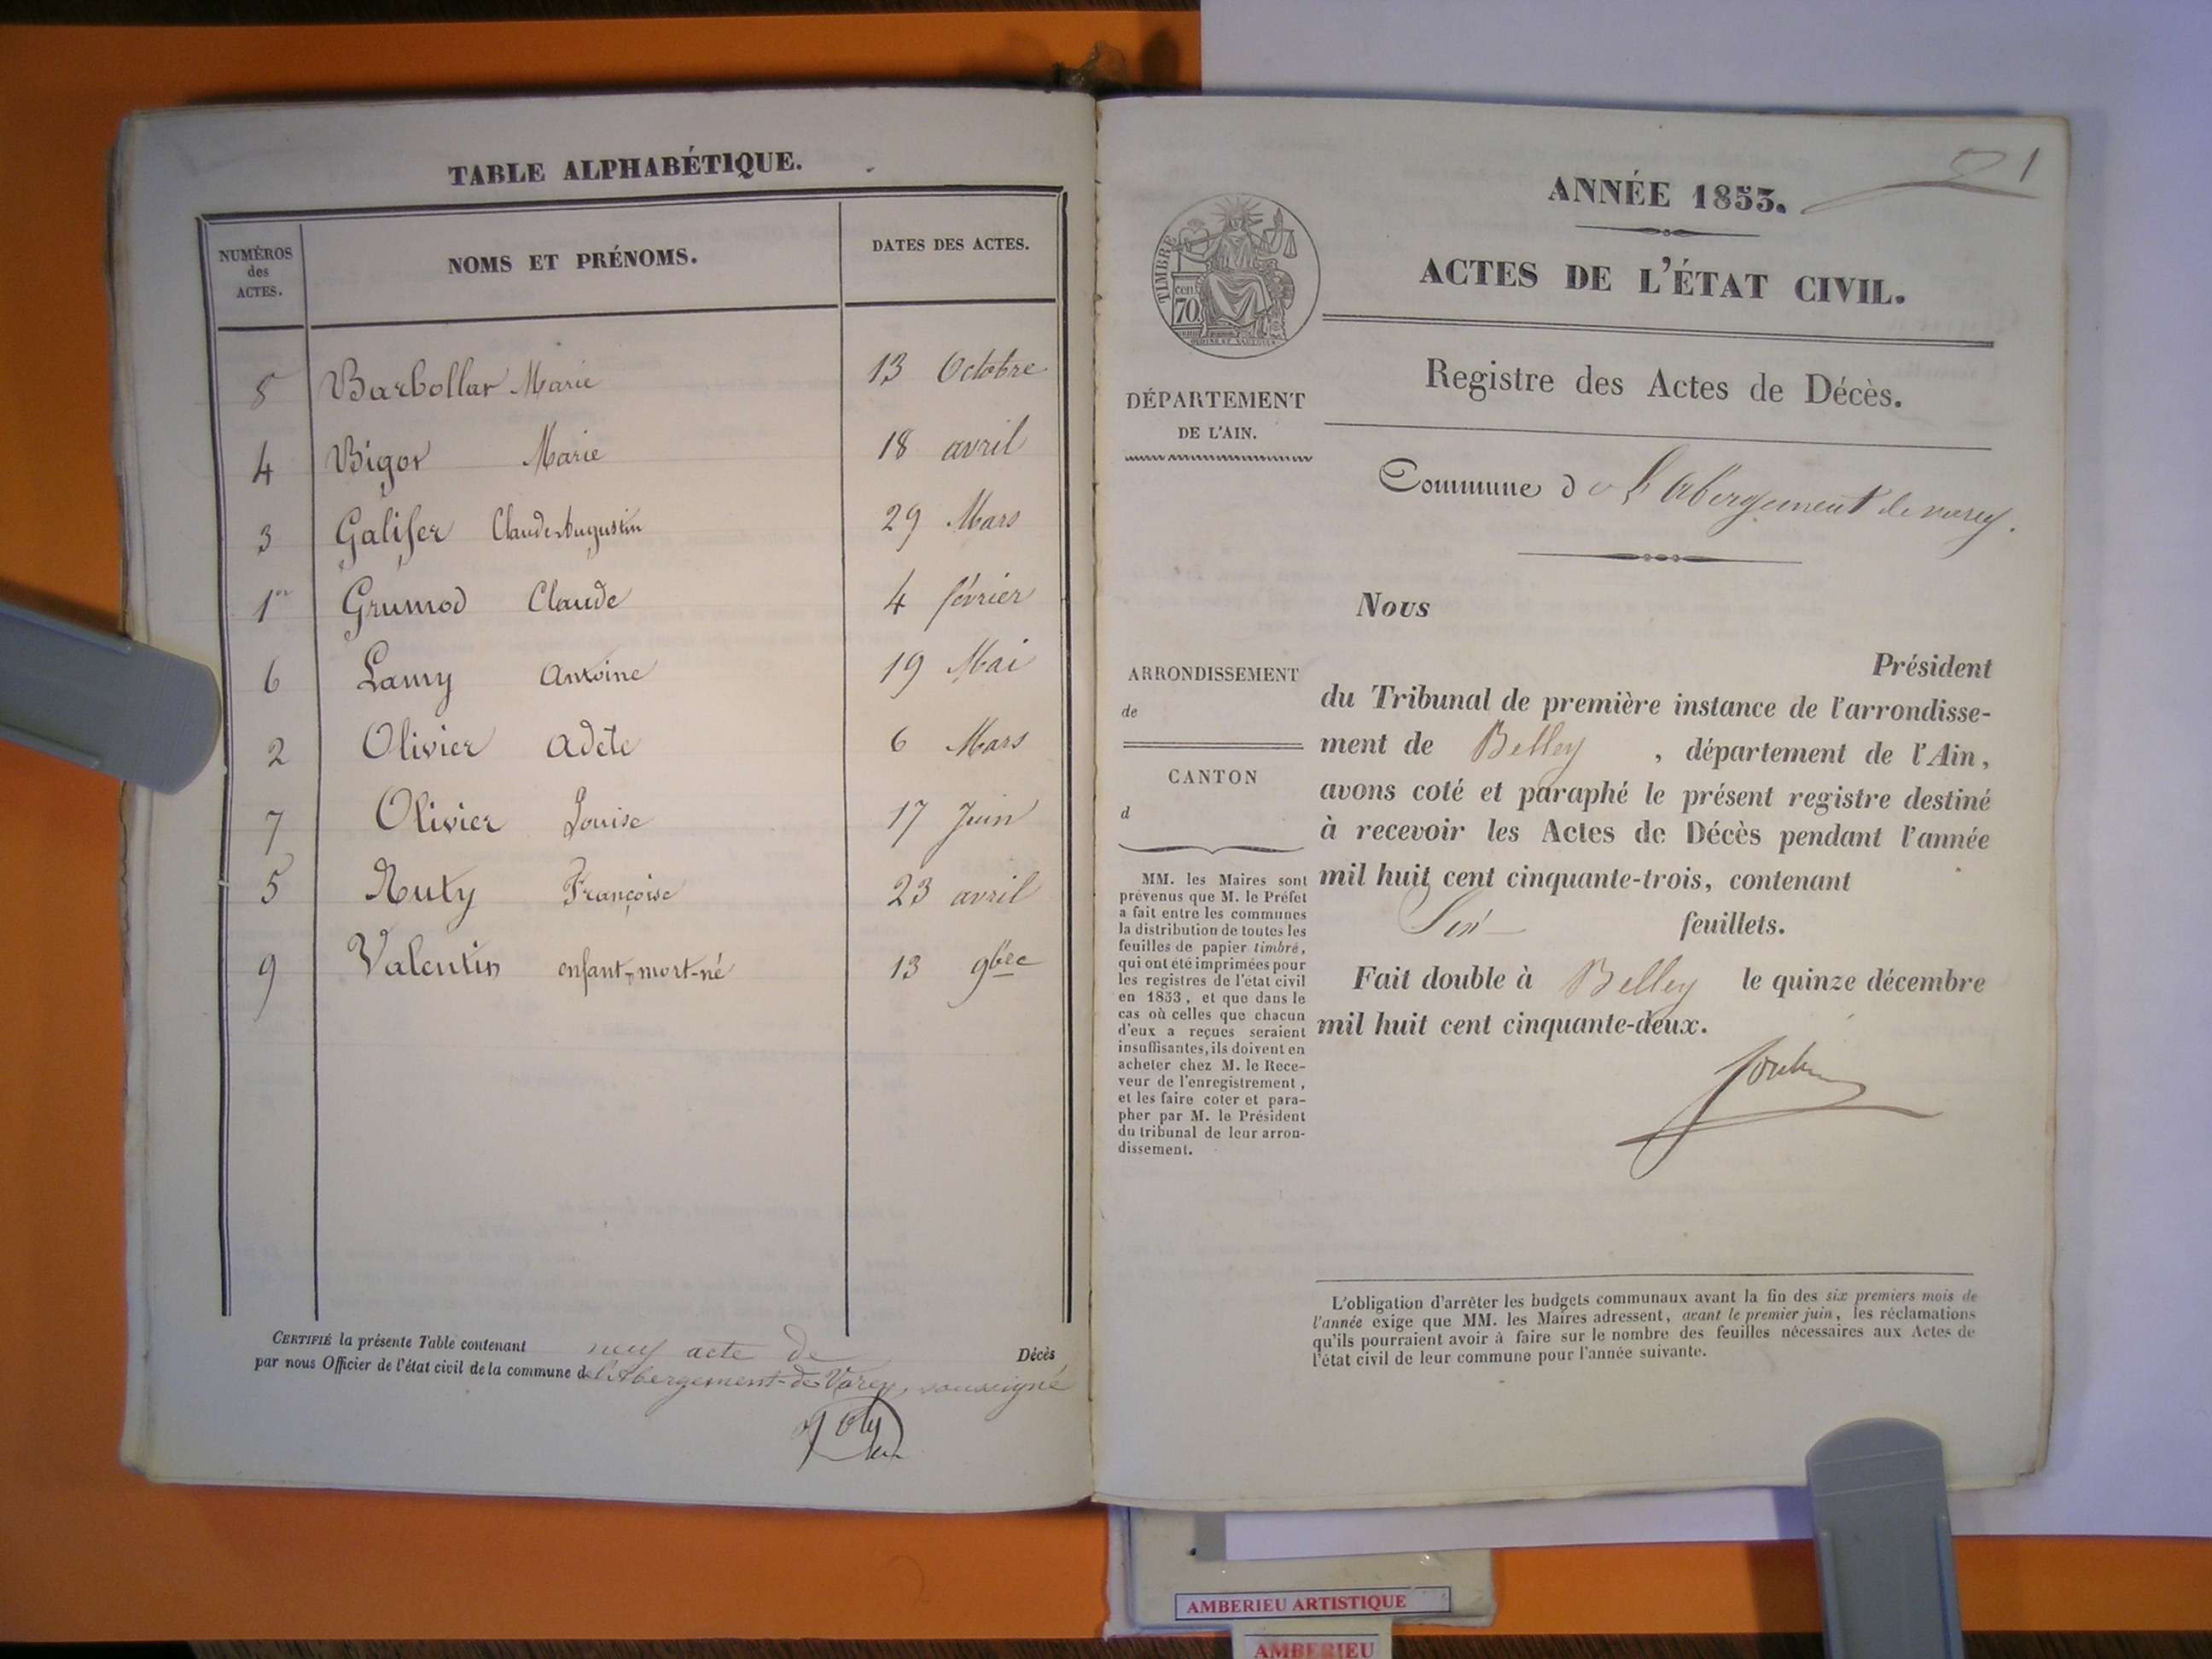 TABLE ALPHABÉTIQUE.
NUMÉROS
des
ACTES.
NOMS ET PRÉNOMS.
DATES DES ACTES.
8 Barbollat Marie 13 Octobre
4 Bigot Marie 18 avril
3 Galifer Claude Augustin 29 Mars
1er Grumod Claude 4 février
6 Lamy Antoine 19 Mai
2 Olivier Adele 6 Mars
7 Olivier Louise 17 Juin
5 Ruty Françoise 23 avril
9 Valentin enfant-mort-né 13 9bre
CERTIFIÉ la présente Table contenant neuf acte de Décès
par nous Officier de l'état civil de la commune de l'Abergement-de-Varey, soussigné
ANNÉE 1853.
1
ACTES DE L'ÉTAT CIVIL.
TIMBRE
cen.
70
Registre des Actes de Décès.
DÉPARTEMENT
DE L'AIN.
Commune de L'abergement de varey.
Nous
Président
du Tribunal de première instance de l'arrondisse-
ment de Belley , département de l'Ain,
avons coté et paraphé le présent registre destiné
à recevoir les Actes de Décès pendant l'année
mil huit cent cinquante-trois, contenant
Six feuillets.
Fait double à Belley le quinze décembre
mil huit cent cinquante-deux.
ARRONDISSEMENT
de
CANTON
d
MM. les Maires sont
prévenus que M. le Préfet
a fait entre les communes
la distribution de toutes les
feuilles de papier timbré,
qui ont été imprimées pour
les registres de l'état civil
en 1853, et que dans le
cas où celles que chacun
d'eux a reçues seraient
insuffisantes, ils doivent en
acheter chez M. le Rece-
veur de l'enregistrement,
et les faire coter et para-
pher par M. le Président
du tribunal de leur arron-
dissement.
L'obligation d'arrêter les budgets communaux avant la fin des six premiers mois de
l'année exige que MM. les Maires adressent, avant le premier juin, les réclamations
qu'ils pourraient avoir à faire sur le nombre des feuilles nécessaires aux Actes de
l'état civil de leur commune pour l'année suivante.
AMBERIEU ARTISTIQUE
AMBERIEU